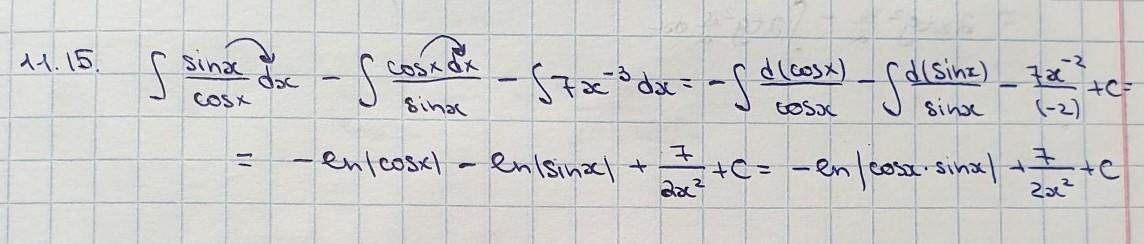 11.15. ∫ sinx/cosx dx - ∫ cosxdx/sinx - ∫7x⁻³dx = -∫ d(cosx)/cosx - ∫ d(sinx)/sinx - 7x⁻²/(-2) + C =
= -ln|cosx| - ln|sinx| + 7/2x² + C = -ln|cosx·sinx| + 7/2x² + C